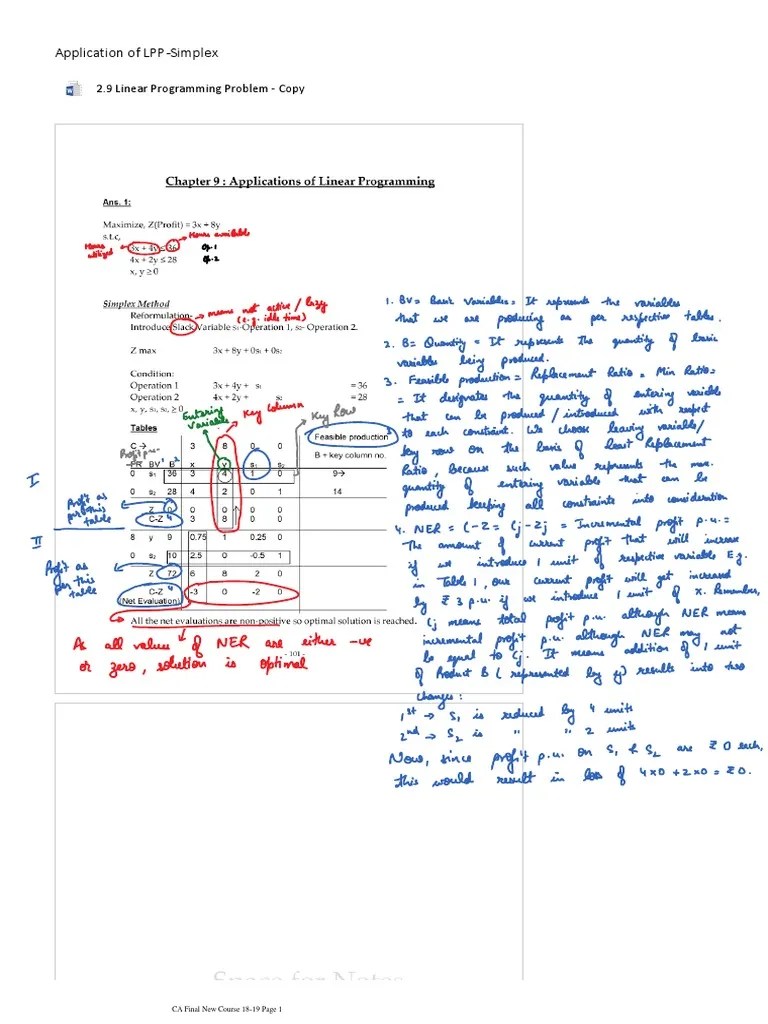 Application of LPP-Simplex
2.9 Linear Programming Problem - Copy
Chapter 9 : Applications of Linear Programming
Ans. 1:
Maximize, Z(Profit) = 3x + 8y
s.t.c,
Hours available
Hours utilized
3x + 4y ≤ 36 Op.1
4x + 2y ≤ 28 Op.2
x, y ≥ 0
Simplex Method
Reformulation- → means not active / lazy
(e.g. idle time)
Introduce Slack Variable s₁-Operation 1, s₂- Operation 2.
Z max 3x + 8y + 0s₁ + 0s₂
Condition:
Operation 1 3x + 4y + s₁ = 36
Operation 2 4x + 2y + s₂ = 28
x, y, s₁, s₂, ≥ 0
Entering Variable
Key Column
Key Row
Tables
C → 3 8 0 0 Feasible production 3
PR BV 1 B 2 x y s₁ s₂ B ÷ key column no.
I
0 s₁ 36 3 4 1 0 9→
0 s₂ 28 4 2 0 1 14
Profit as per this table
Z 0 0 0 0 0
C-Z 4 3 8 0 0
II
8 y 9 0.75 1 0.25 0
0 s₂ 10 2.5 0 -0.5 1
Profit as per this table
Z 72 6 8 2 0
C-Z 4 -3 0 -2 0
(Net Evaluation)
All the net evaluations are non-positive so optimal solution is reached.
As all values of NER are either -ve
or zero, solution is optimal
- 101 -
1. BV = Basic Variables = It represents the variables
that we are producing as per respective tables.
2. B = Quantity = It represents the quantity of basic
variable being produced.
3. Feasible production = Replacement Ratio = Min Ratio =
= It designates the quantity of entering variable
that can be produced / introduced with respect
to each constraint. We choose leaving variable/
key row on the basis of least Replacement
Ratio, because such value represents the max.
quantity of entering variable that can be
produced keeping all constraints into consideration
4. NER = C-Z = Cj-Zj = Incremental profit p.u. =
The amount of current profit that will increase
if we introduce 1 unit of respective variable E.g.
in Table 1, our current profit will get increased
by ₹ 3 p.u. if we introduce 1 unit of x. Remember,
Cj means total profit p.u. although NER means
incremental profit p.u. although NER may not
be equal to Cj. It means addition of 1 unit
of Product B (represented by y) results into two
changes :
1st → S₁ is reduced by 4 units
2nd → S₂ is " " 2 units
Now, since profit p.u. on S₁ & S₂ are ₹ 0 each,
this would result in loss of 4x0 + 2x0 = ₹0.
Space for Notes
CA Final New Course 18-19 Page 1